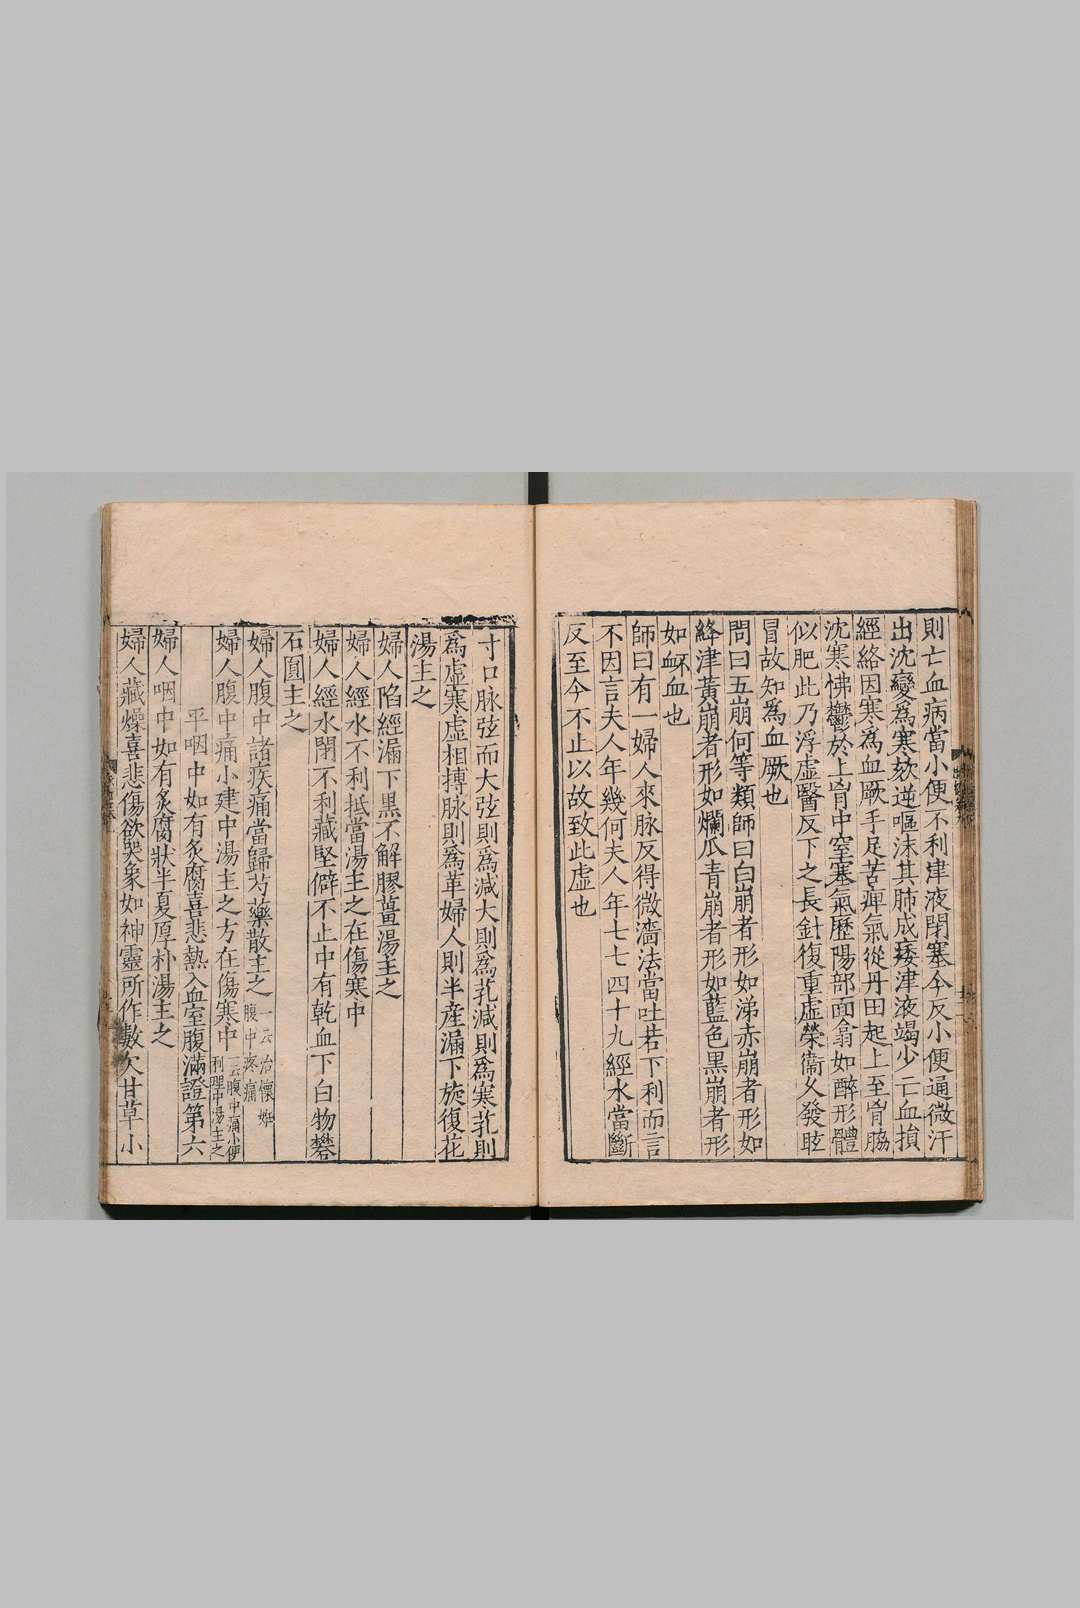 則亡血病當小便不利津液閉塞今反小便通微汗
出沈變爲寒欬逆嘔沫其肺成痿津液竭少亡血損
經絡因寒爲血厥手足苦痺氣從丹田起上至胷脇
沈寒怫鬱於上胷中窒塞氣歷陽部面翕如醉形體
似肥此乃浮虛醫反下之長針復重虛榮衞久發眩
冒故知爲血厥也
問曰五崩何等類師曰白崩者形如涕赤崩者形如
絳津黃崩者形如爛瓜青崩者形如藍色黑崩者形
如衃血也
師曰有一婦人來脉反得微濇法當吐若下利而言
不因言夫人年幾何夫人年七七四十九經水當斷
反至今不止以故致此虛也
寸口脉弦而大弦則爲減大則爲芤減則爲寒芤則
爲虛寒虛相搏脉則爲革婦人則半産漏下旋復花
湯主之
婦人陷經漏下黑不解膠薑湯主之
婦人經水不利抵當湯主之在傷寒中
婦人經水閉不利藏堅僻不止中有乾血下白物礬
石圓主之
婦人腹中諸疾痛當歸芍藥散主之一云治懷妊腹中疼痛
婦人腹中痛小建中湯主之方在傷寒中一云腹中痛小便利理中湯主之
平咽中如有炙腐喜悲熱入血室腹滿證第六
婦人咽中如有炙腐狀半夏厚朴湯主之
婦人藏燥喜悲傷欲哭象如神靈所作數欠甘草小